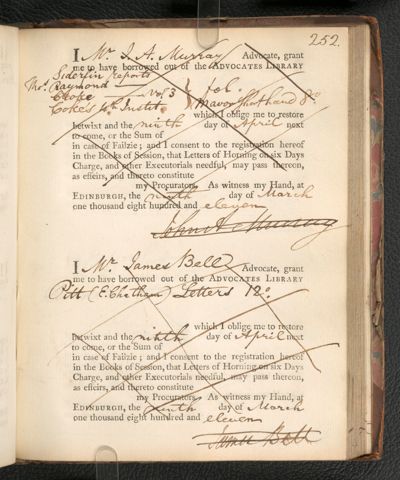 252.
I Mr. J. A. Murray Advocate, grant
me to have borrowed out of the ADVOCATES LIBRARY
Siderfin reports
Thos. Raymond
Croke Vol 3 fol.
Coke's 4th Institute Mavor Shorthand 8o
which I oblige me to restore
betwixt and the ninth day of April next
to come, or the Sum of
in case of Failzie; and I consent to the registration hereof
in the Books of Session, that Letters of Horning on six Days
Charge, and other Executorials needful, may pass thereon,
as effeirs, and thereto constitute
my Procurators. As witness my Hand, at
EDINBURGH, the ninth day of March
one thousand eight hundred and eleven
John A Murray
I Mr. James Bell Advocate, grant
me to have borrowed out of the ADVOCATES LIBRARY
Pitt (E. Chatham) Letters 12o.
which I oblige me to restore
betwixt and the ninth day of April next
to come, or the Sum of
in case of Failzie; and I consent to the registration hereof
in the Books of Session, that Letters of Horning on six Days
Charge, and other Executorials needful, may pass thereon,
as effeirs, and thereto constitute
my Procurators. As witness my Hand, at
EDINBURGH, the ninth day of March
one thousand eight hundred and eleven
James Bell